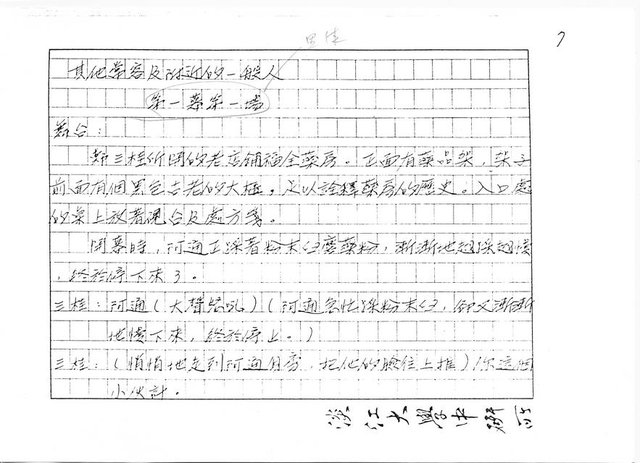 7
其他常客及附近的一般人
第一幕第一場
舞台：
鄭三桂所開的老店鋪福全藥房。正面有藥品架，架子
前面有個黑色古老的大櫃，足以詮釋藥房的歷史。入口處
的桌上放著硯台及處方箋。
開幕時，阿通正踩著粉末臼磨藥粉，漸漸地越踩越慢
，終於停下來了。
三桂：阿通（大聲怒吼）（阿通急忙踩粉末臼，卻又漸漸
地慢下來，終於停止。）
三桂：（悄悄地走到阿通身旁，把他的臉往上推）你這個
小伙計。
淡江大學中